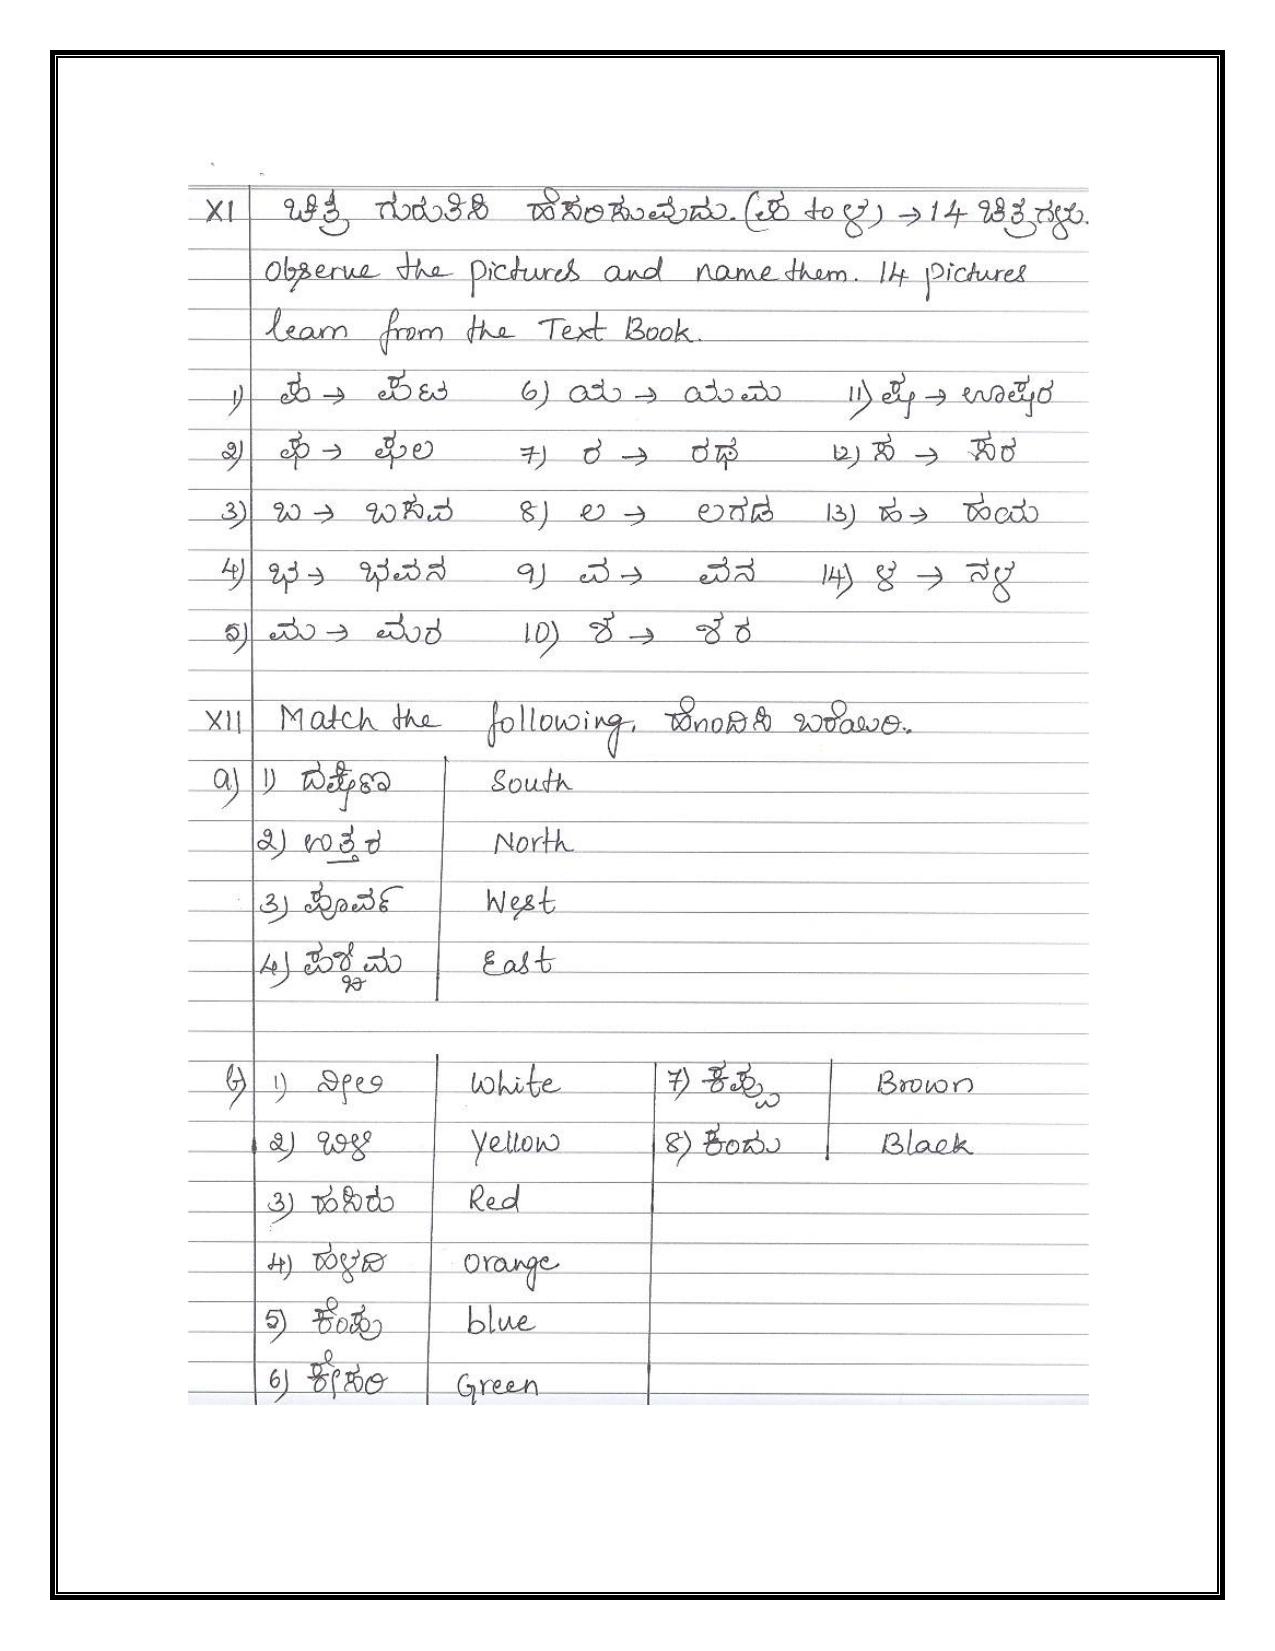 XI ಚಿತ್ರ ಗುರುತಿಸಿ ಹೆಸರಿಸುವುದು. (ಪ to ಳ) → 14 ಚಿತ್ರಗಳು.
Observe the pictures and name them. 14 pictures
learn from the Text Book.
1) ಪ → ಪಟ 6) ಯ → ಯಮ 11) ಷ → ಊಷರ
2) ಫ → ಫಲ 7) ರ → ರಥ 12) ಸ → ಸರ
3) ಬ → ಬಸವ 8) ಲ → ಲಗಡ 13) ಹ → ಹಯ
4) ಭ → ಭವನ 9) ವ → ವನ 14) ಳ → ನಳ
5) ಮ → ಮರ 10) ಶ → ಶರ
XII Match the following. ಹೊಂದಿಸಿ ಬರೆಯಿರಿ.
a) 1) ದಕ್ಷಿಣ South
2) ಉತ್ತರ North
3) ಪೂರ್ವ West
4) ಪಶ್ಚಿಮ East
b) 1) ನೀಲಿ White 7) ಕಪ್ಪು Brown
2) ಬಿಳಿ Yellow 8) ಕಂದು Black
3) ಹಸಿರು Red
4) ಹಳದಿ Orange
5) ಕೆಂಪು blue
6) ಕೇಸರಿ Green